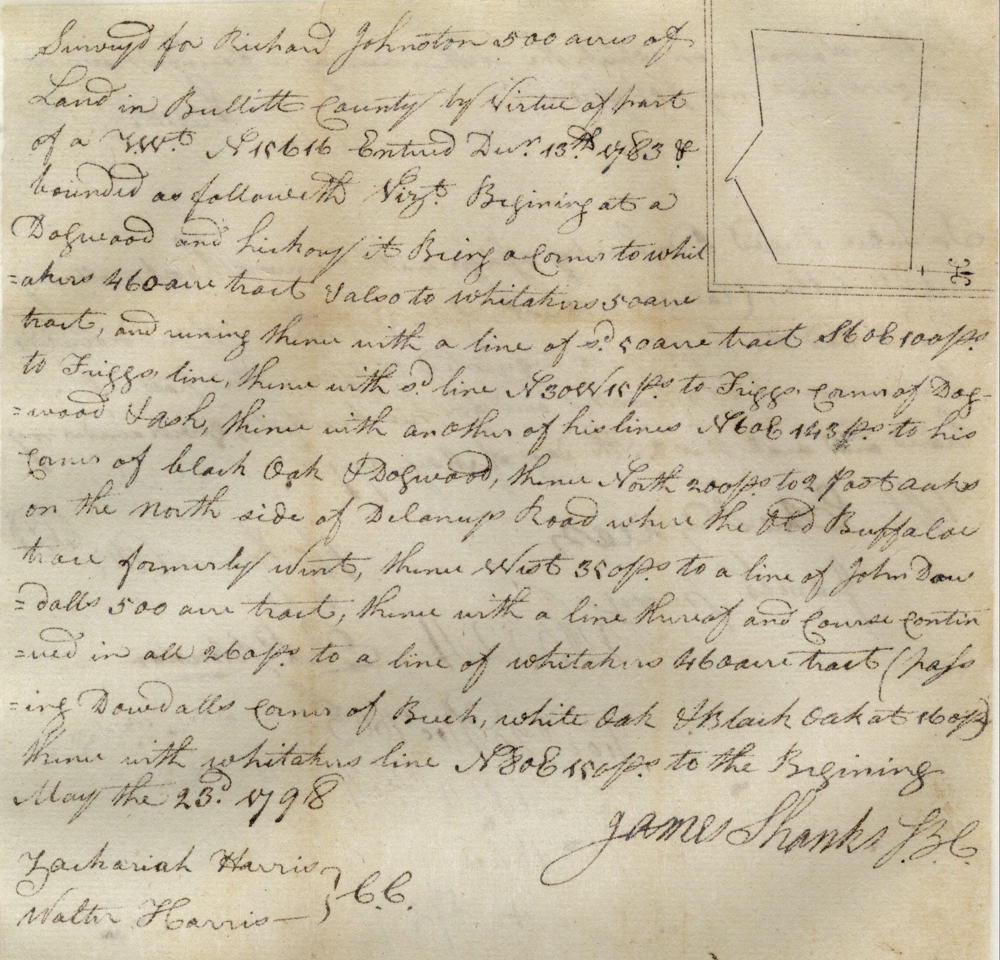 Surveyd for Richard Johnston 500 acres of
Land in Bullitt County by Virtue of part
of a TWt. N 15616 Entred Decr. 13th 1783 &
bounded as followeth Vizt. Begining at a
Dogwood and hickory it Being a Corner to whit
=akers 460 acre tract & also to whitakers 50 acre
tract, and runing thence with a line of sd. 50 acre tract S60E 100 ps.
to Triggs line, thence with sd line N30W 15 ps. to Triggs Corner of Dog-
=wood & ash, thence with another of his lines N60E 143 ps. to his
Corner of black Oak & Dogwood, thence North 200 ps. to 2 Post oaks
on the North side of Delanys Road where the Old Buffaloe
trace formerly went, thence West 350 ps. to a line of John Dow
=dalls 500 acre tract, thence with a line thereof and Course Contin
=ued in all 260 ps. to a line of whitakers 460 acre tract (pass
=ing Dowdalls Corner of Buch, white Oak & Black Oak at 160 ps)
thence with whitakers line N80E 150 ps. to the Begining
May the 23d. 1798
James Shanks S.B.C.
Zachariah Harris } C.C.
Walter Harris